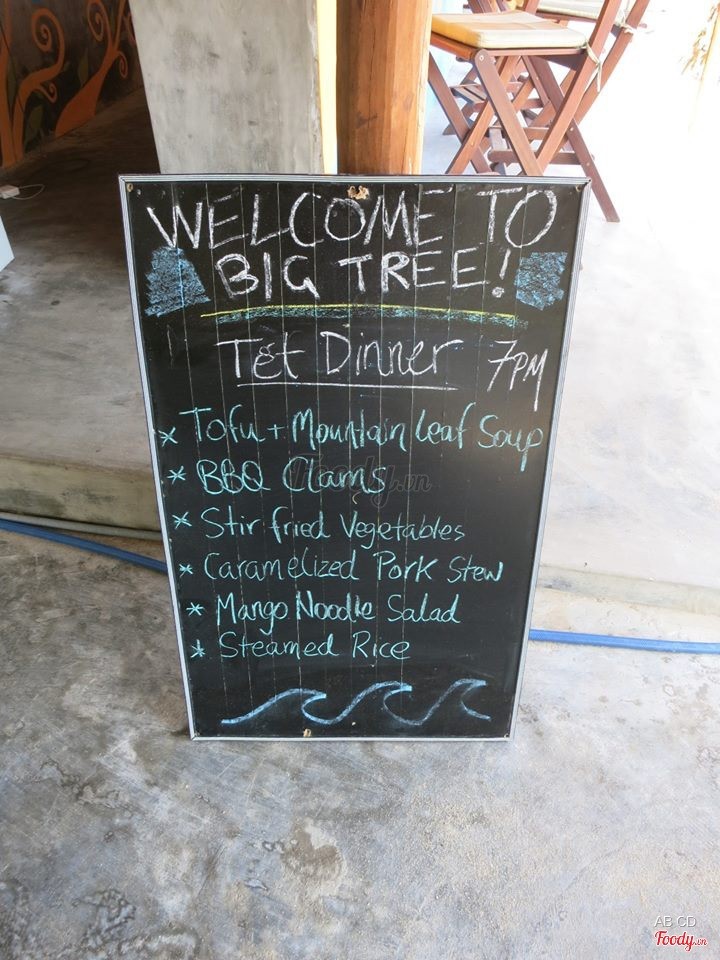 WELCOME TO
BIG TREE!
Tet Dinner 7PM
* Tofu + Mountain Leaf Soup
* BBQ Clams
* Stir fried Vegetables
* Caramelized Pork Stew
* Mango Noodle Salad
* Steamed Rice
Foody.vn
AB CD
Foody.vn